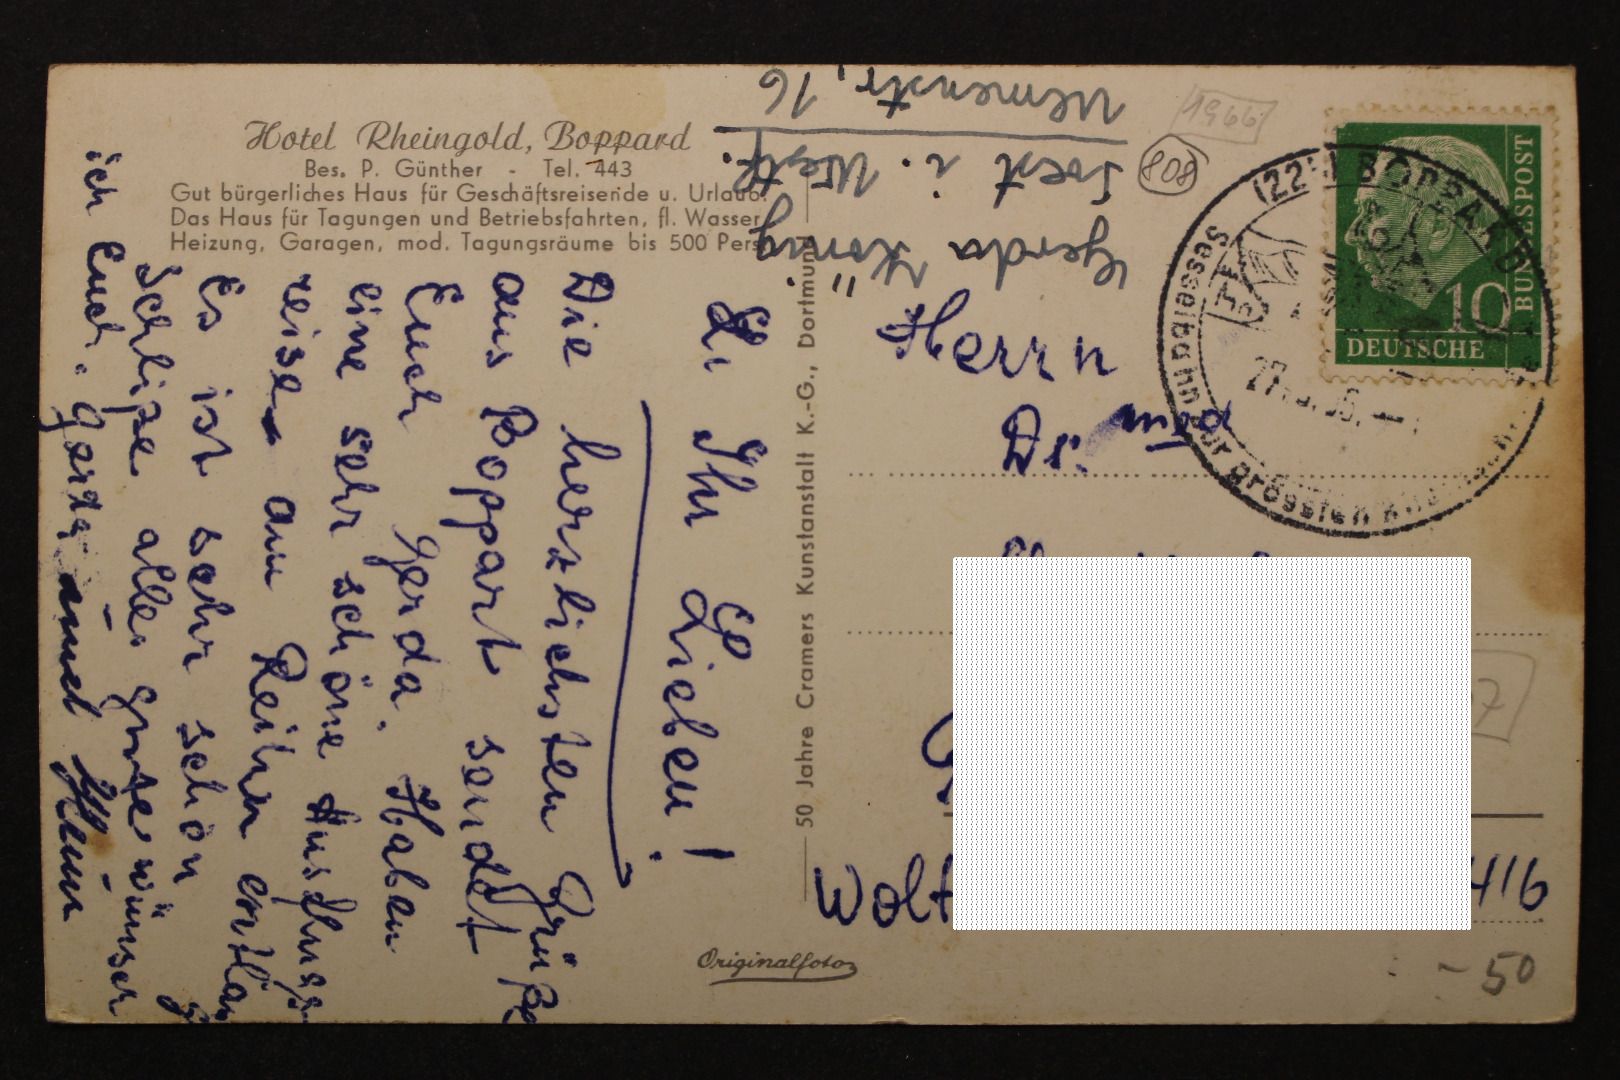 Hotel Rheingold, Boppard
Bes. P. Günther - Tel. 443
Gut bürgerliches Haus für Geschäftsreisende u. Urlaub.
Das Haus für Tagungen und Betriebsfahrten, fl. Wasser
Heizung, Garagen, mod. Tagungsräume bis 500 Pers
Gerda König
Soest i. Westf.
Ulmenstr, 16
1966
808
(22b) BOPPARD
Sesselbahn zur grössten
DEUTSCHE
BUNDESPOST
10
Herrn
Dr.
Wolt
416
07
- 50
50 Jahre Cramers Kunstanstalt K.-G., Dortmund
Originalfoto
Ihr Lieben!
Die herzlichsten Grüße
aus Boppart sendet
Euch Gerda. Haben
eine sehr schöne Ausflugs
reise am Reihn entlan
Es ist sehr schön
Schlipse alles gute wünscht
ich Euch. Gerda und Heinz